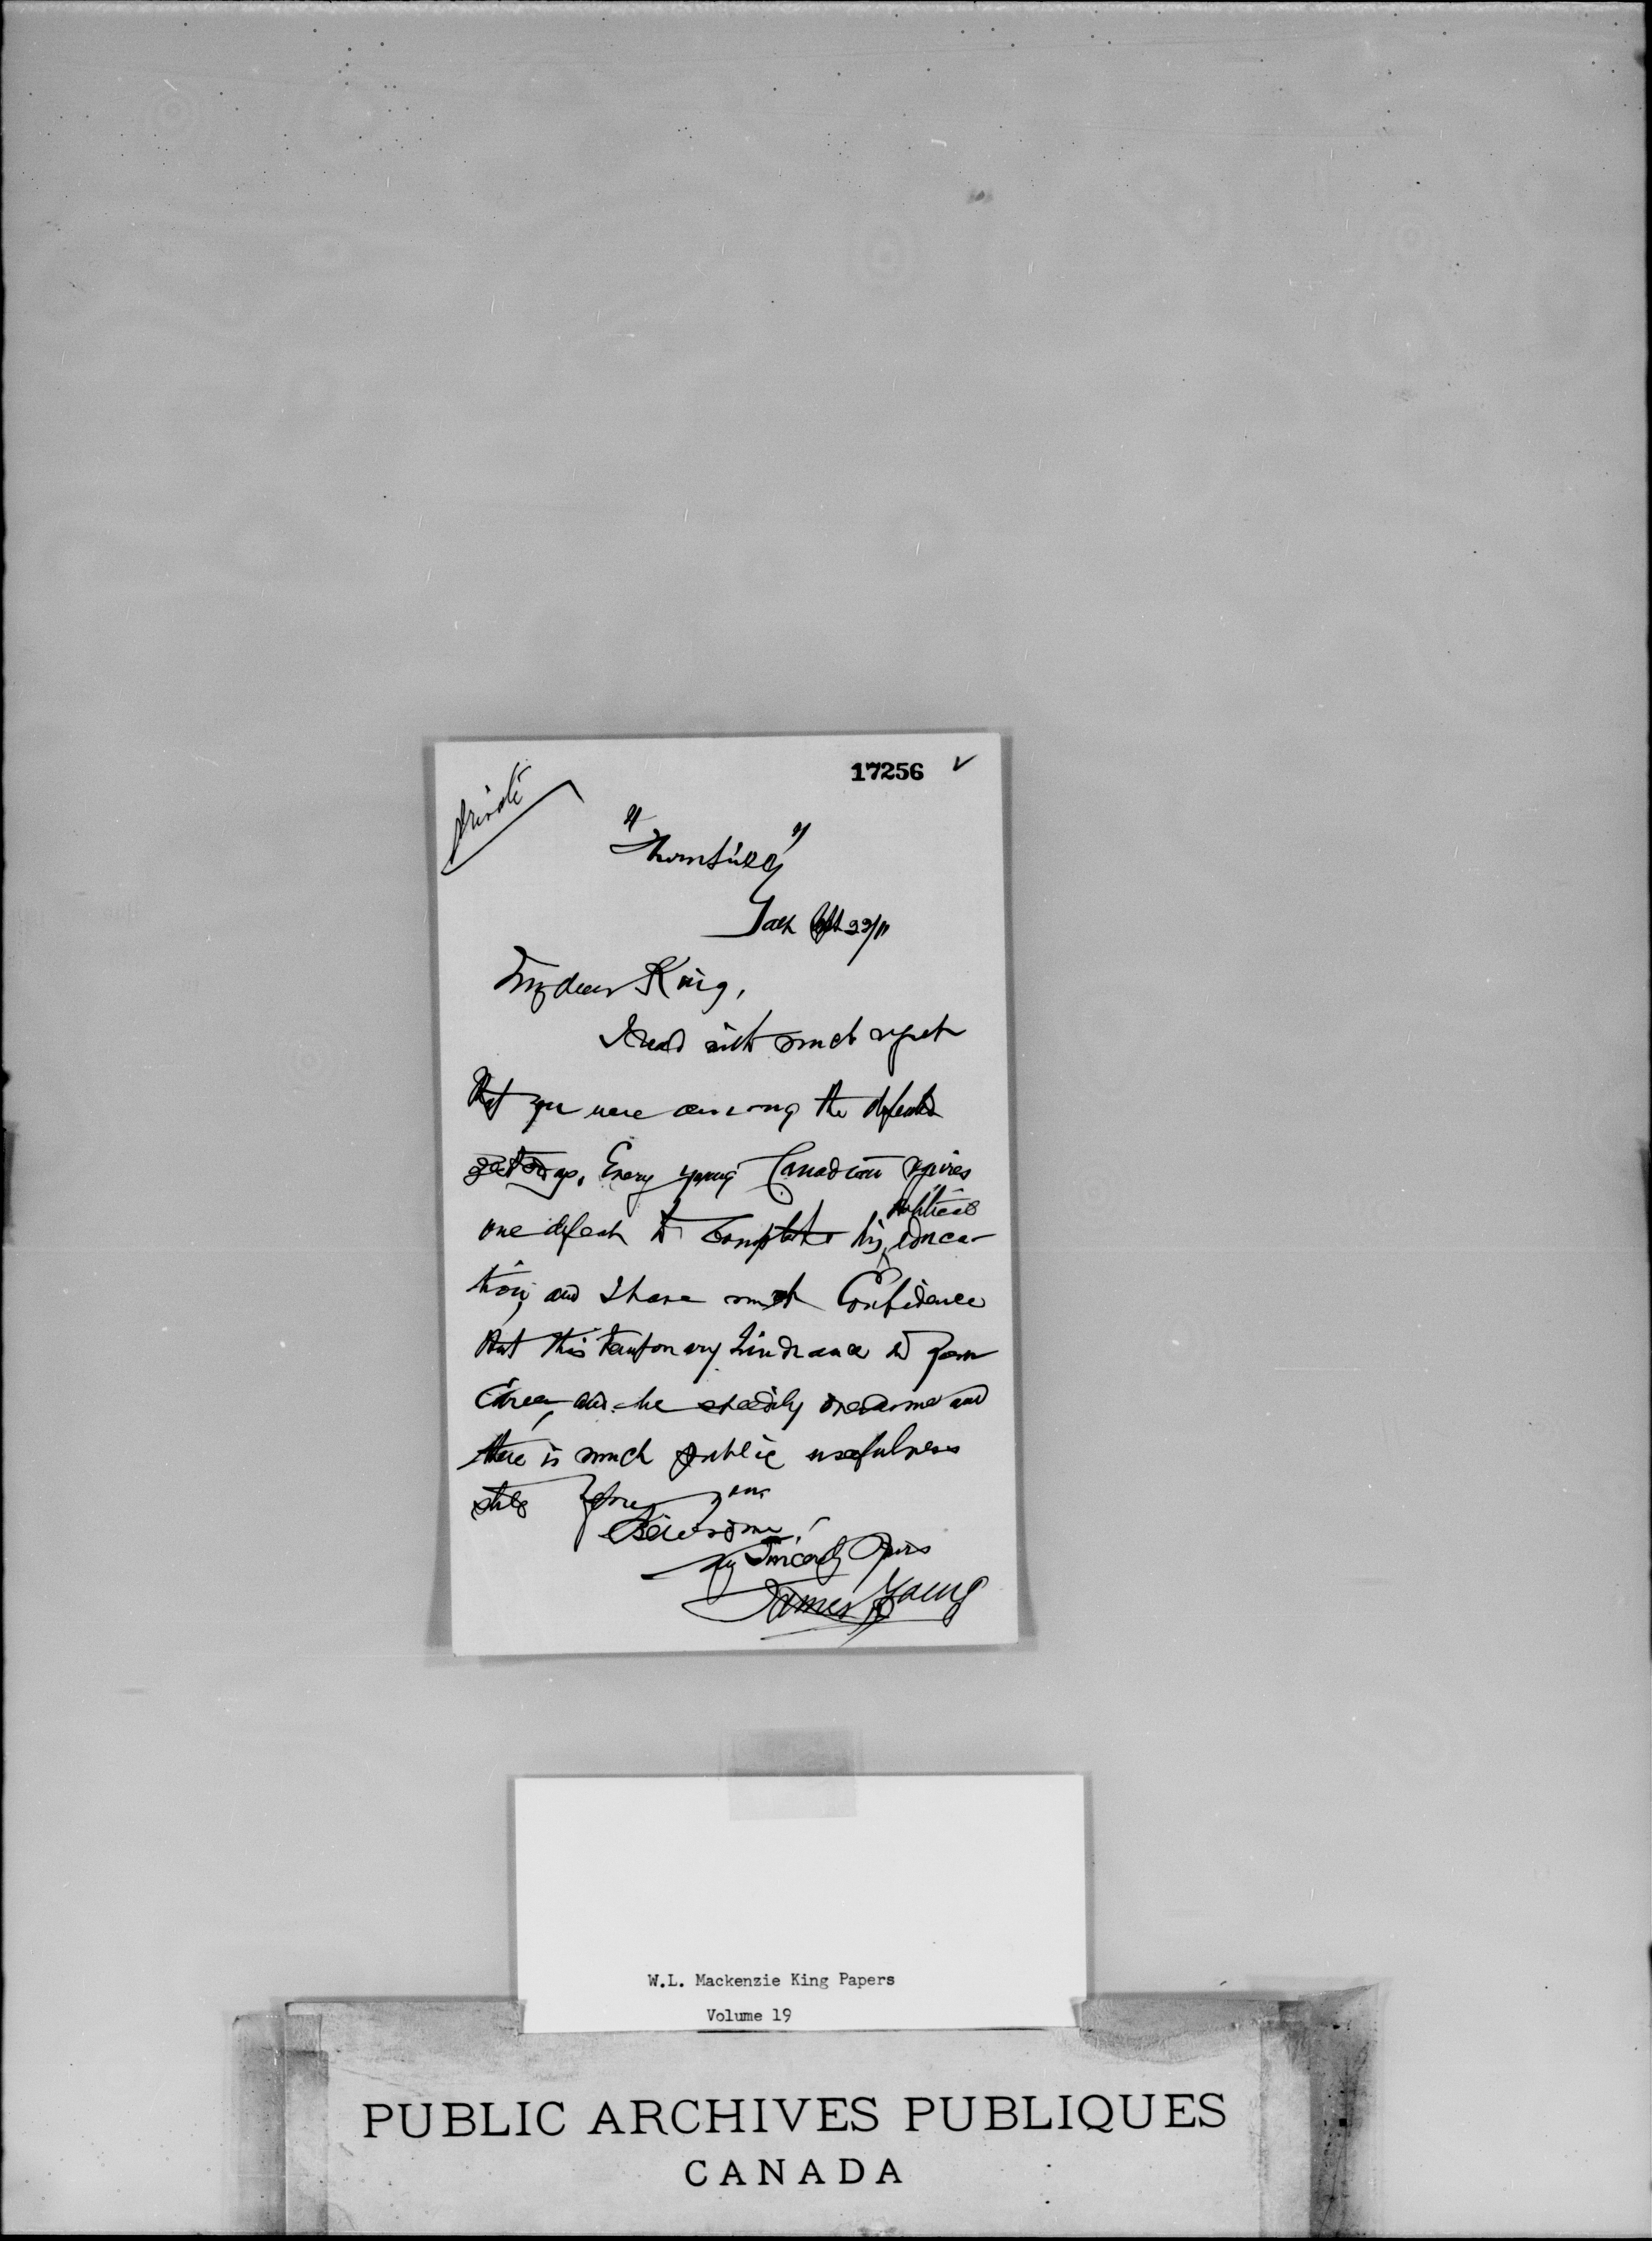 17256
Private
"Thornhill"
Galt Sept 22/11
My dear King,
I read with much regret
that you were among the defeated
yesterday. Every young Canadian requires
one defeat to complete his political educa-
tion, and I have much Confidence
that this temporary hindrance to your
Career, will be speedily overcome and
there is much public usefulness
still before you
Believe me!
Very Sincerely Yours
James Young
W.L. Mackenzie King Papers
Volume 19
PUBLIC ARCHIVES PUBLIQUES
CANADA